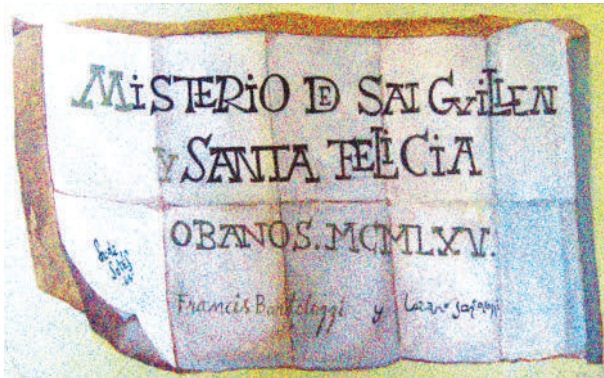 MISTERIO DE SAN GVILLEN
y SANTA FELICIA
OBANOS. MCMLXV.
Francis Bartolozzi y